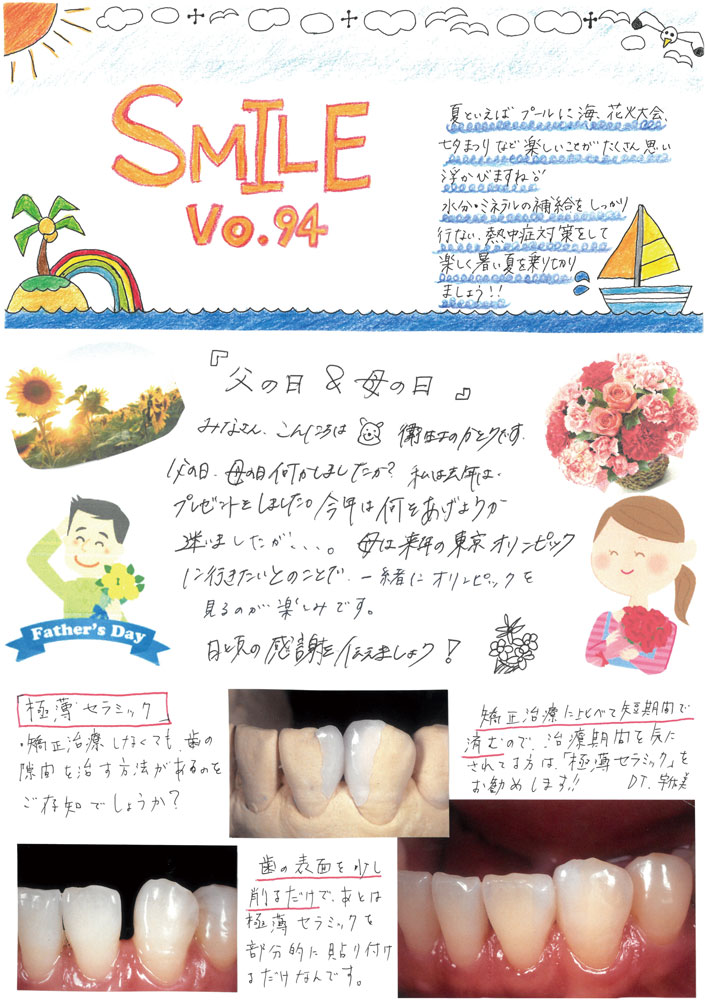 SMILE
Vo.94
夏といえば プールに海、花火大会、
七夕まつりなど楽しいことがたくさん思い
浮かびますね
水分・ミネラルの補給をしっかり
行ない、熱中症対策をして
楽しく暑い夏を乗り切り
ましょう!!
『父の日 & 母の日』
みなさん、こんにちは 衛生士のカトウです。
父の日、母の日何かしましたか? 私は去年は、
プレゼントをしました。今年は何をあげようか
迷いましたが、、、。母は来年の東京オリンピック
に行きたいとのことで、一緒にオリンピックを
見るのが楽しみです。
日と頃の感謝を伝えましょう!
Father's Day
極薄セラミック
・矯正治療しなくても、歯の
隙間を治す方法があるのを
ご存知でしょうか?
矯正治療に比べて短期間で
済むので、治療期間を気に
されてる方は、「極薄セラミック」を
お勧めします!! DT.
歯の表面を少し
削るだけで、あとは
極薄セラミックを
部分的に貼り付け
るだけなんです。